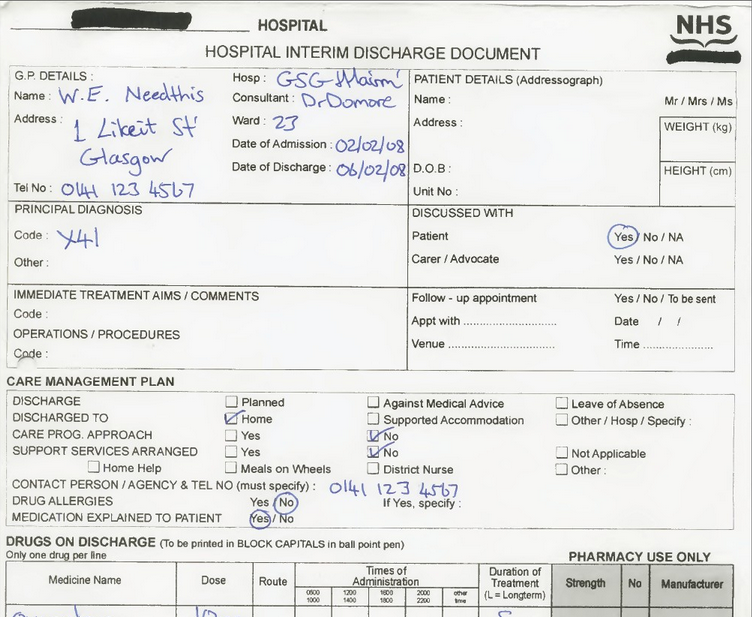 HOSPITAL
NHS
HOSPITAL INTERIM DISCHARGE DOCUMENT
G.P. DETAILS :
Name : W.E. Needthis
Address : 1 Likeit St
Glasgow
Tel No : 0141 123 4567
Hosp :
Consultant : Dr Domore
Ward : 23
Date of Admission : 02/02/08
Date of Discharge : 06/02/08
PATIENT DETAILS (Addressograph)
Name : Mr / Mrs / Ms
Address :
WEIGHT (kg)
D.O.B :
HEIGHT (cm)
Unit No :
PRINCIPAL DIAGNOSIS
Code : X41
Other :
DISCUSSED WITH
Patient Yes / No / NA
Carer / Advocate Yes / No / NA
IMMEDIATE TREATMENT AIMS / COMMENTS
Code :
OPERATIONS / PROCEDURES
Code :
Follow - up appointment Yes / No / To be sent
Appt with ........................... Date / /
Venue ................................. Time ....................
CARE MANAGEMENT PLAN
DISCHARGE Planned Against Medical Advice Leave of Absence
DISCHARGED TO Home Supported Accommodation Other / Hosp / Specify :
CARE PROG. APPROACH Yes No
SUPPORT SERVICES ARRANGED Yes No Not Applicable
Home Help Meals on Wheels District Nurse Other :
CONTACT PERSON / AGENCY & TEL NO (must specify) : 0141 123 4567
DRUG ALLERGIES Yes / No If Yes, specify :
MEDICATION EXPLAINED TO PATIENT Yes / No
DRUGS ON DISCHARGE (To be printed in BLOCK CAPITALS in ball point pen)
Only one drug per line
PHARMACY USE ONLY
Medicine Name Dose Route Times of Administration Duration of Treatment (L = Longterm) Strength No Manufacturer
0800 1000 1200 1400 1600 1800 2000 2200 other time